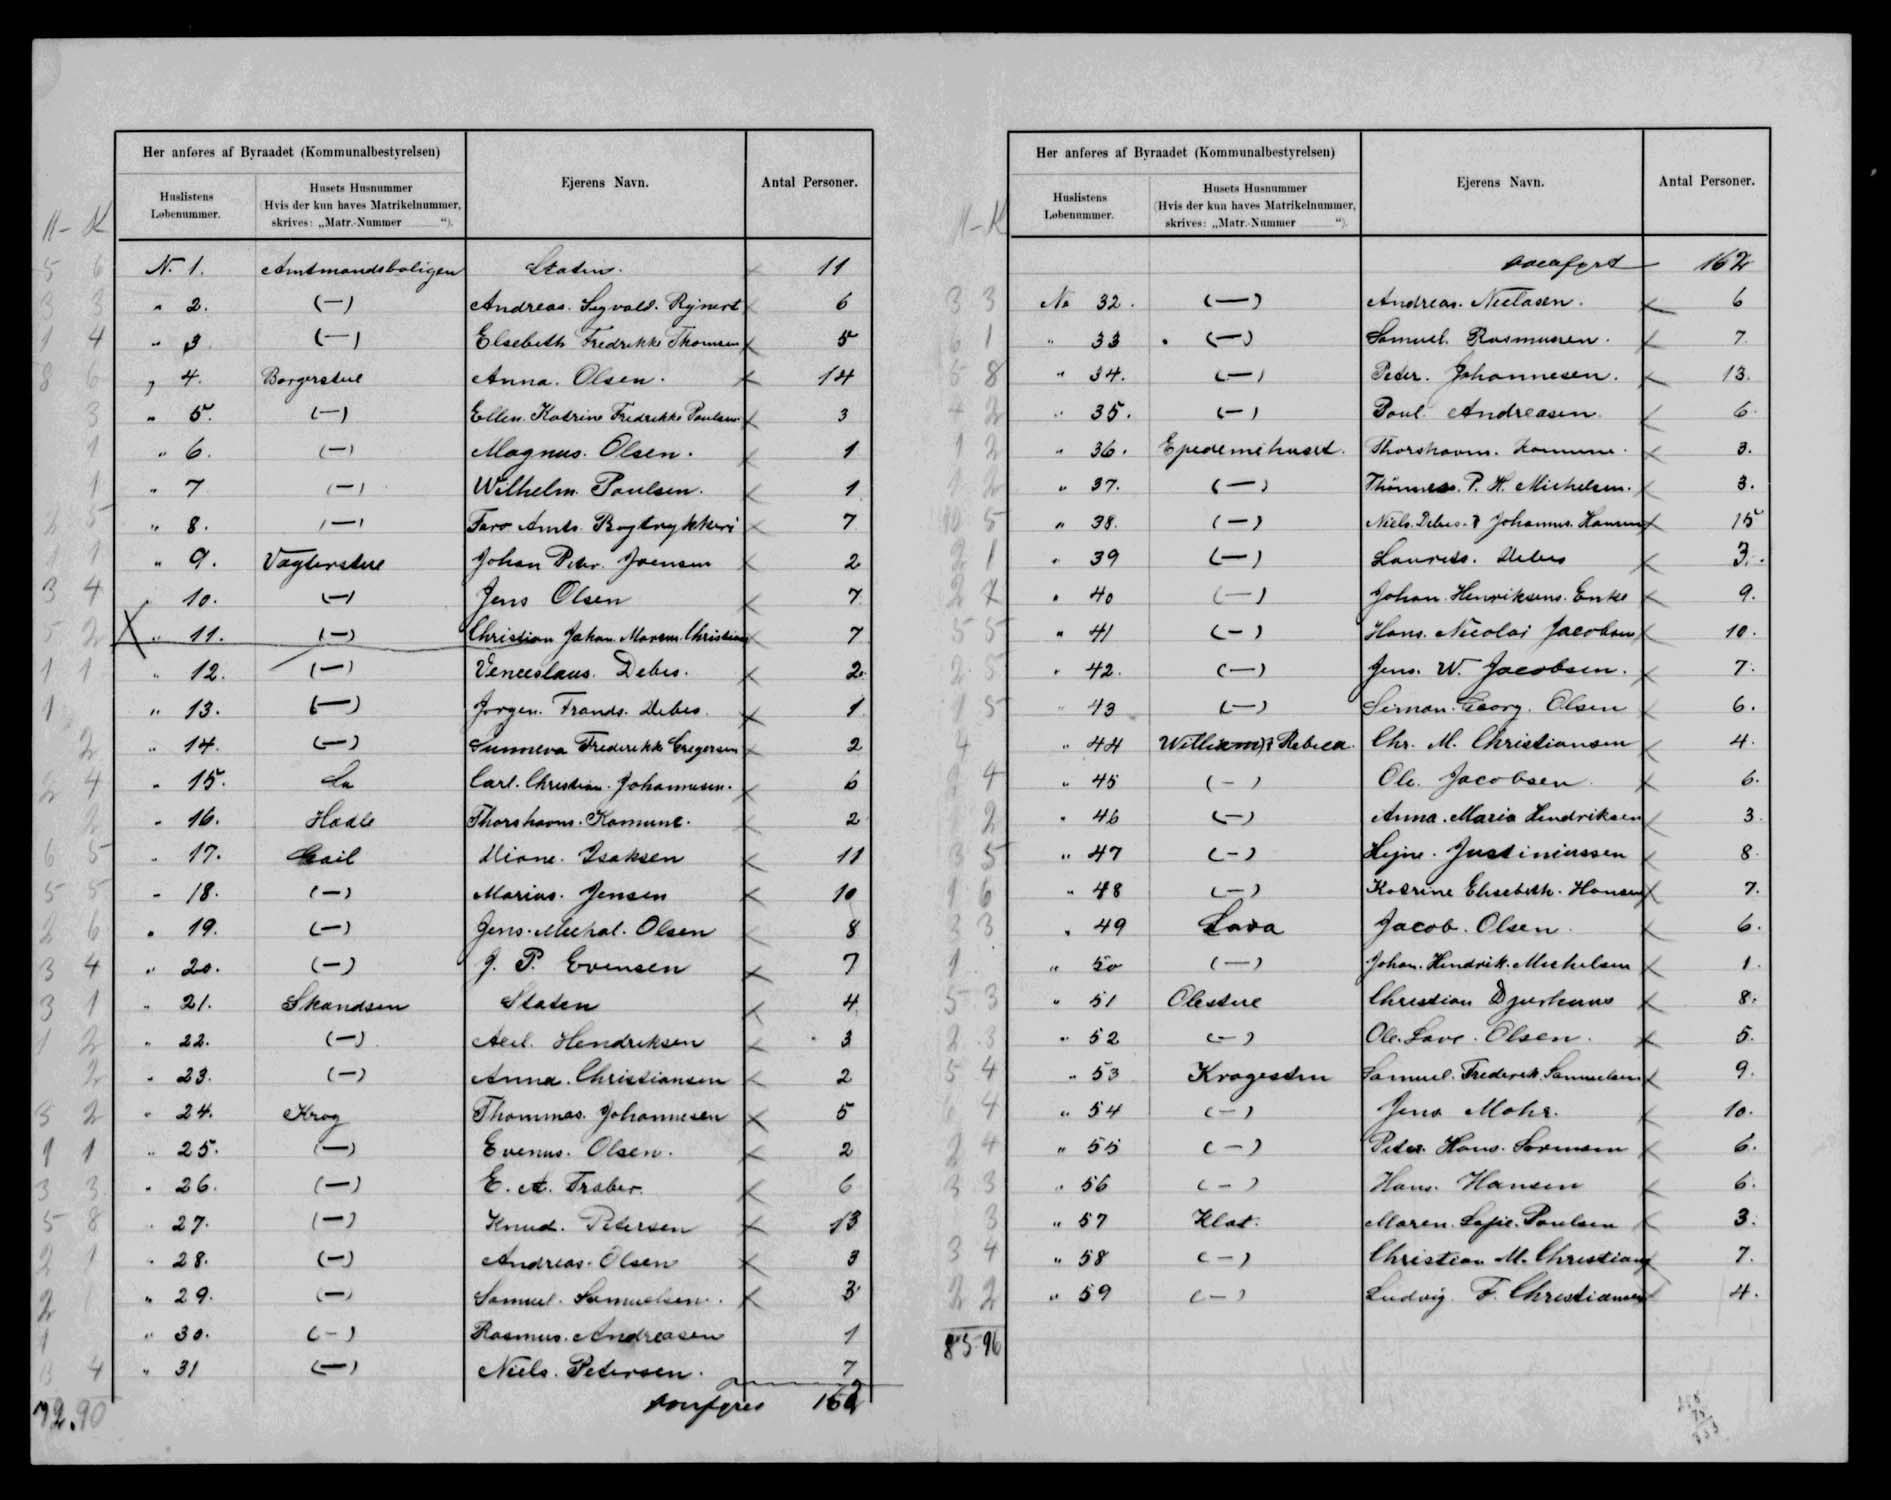 Her anføres af Byraadet (Kommunalbestyrelsen)
Huslistens Løbenummer.
Husets Husnummer (Hvis der kun haves Matrikelnummer, skrives: „Matr.-Nummer “).
Ejerens Navn.
Antal Personer.
M- K
5 6 N. 1. Amtmandsboligen Staten. 11
3 3 " 2. (—) Andreas. Sigvald. 6
1 4 " 3 (—) Elsebeth Fredrikke Thomsen 5
8 6 " 4. Borgerstue Anna. Olsen. 14
3 " 5. (—) Ellen. Katrine Fredrikke Poulsen 3
1 " 6. (—) Magnus. Olsen. 1
1 " 7 (—) Wilhelm. Poulsen. 1
2 5 " 8. (—) Færø Amts. Bogtrykkeri 7
1 1 " 9. Vagterstue Johan Peter. Joensen 2
3 4 " 10. (—) Jens Olsen 7
5 2 X " 11. (—) Christian Johan. 7
1 1 " 12. (—) Venceslaus. Debes. 2
1 " 13. (—) Jørgen. Frands. Debes. 1
2 " 14. (—) Sunneva Frederikke Gregersen 2
2 4 " 15. Carl. Christian. Johannesen. 6
2 " 16. Thorshavns. Komune. 2
6 5 " 17. Gail Isaksen 11
5 5 " 18. (—) Marius. Jensen 10
2 6 " 19. (—) Jens. Michal. Olsen 8
3 4 " 20. (—) J. P. Evensen 7
3 1 " 21. Skandsen Staten 4
1 2 " 22. (—) Hendriksen 3
2 " 23. (—) Anna. Christiansen 2
3 2 " 24. Krog Thommas. Johannesen 5
1 1 " 25. (—) Evenus. Olsen. 2
3 3 " 26. (—) E. A. 6
5 8 " 27. (—) Knud. Petersen 13
2 1 " 28. (—) Andreas. Olsen 3
2 1 " 29. (—) Samuel. Samuelsen. 3
1 " 30. (—) Rasmus. Andreasen 1
3 4 " 31 (—) Niels. Petersen. 7
72.90 162
Her anføres af Byraadet (Kommunalbestyrelsen)
Huslistens Løbenummer.
Husets Husnummer (Hvis der kun haves Matrikelnummer, skrives: „Matr.-Nummer “).
Ejerens Navn.
Antal Personer.
M-K
162
3 3 No 32. (—) Andreas. Nielasen. 6
6 1 " 33 (—) Samuel. Rasmussen. 7
5 8 " 34. (—) Peter. Johannesen. 13.
4 2 " 35. (—) Poul Andreasen 6.
1 2 " 36. Epedemihuset. Thorshavns. Komune. 3.
" 37. (—) P. H. Michelsen. 3.
10 5 " 38. (—) Niels. Debes. 15
2 1 " 39 (—) Laurits. Debes 3.
2 7 " 40 (—) Johan. Henriksens. Enke 9.
5 5 " 41 (—) Hans. Nicolai Jacobsen 10.
2 5 " 42. (—) Jens. W. Jacobsen. 7.
1 5 " 43 (—) Simon. Georg. Olsen 6.
4 " 44 Chr. M. Christiansen 4.
2 4 " 45 (—) Ole. Jacobsen 6.
2 " 46 (—) Anna. Maria Hendriksen 3.
3 5 " 47 (—) Justinussen 8.
1 6 " 48 (—) Katrine Elisebeth. Hansen 7.
3 3 " 49 Jacob. Olsen. 6.
1 " 50 (—) Johan. Hendrik. Michelsen 1.
5 3 " 51 Olestue Christian Djurhuus 8.
2 3 " 52 (—) Ole. Olsen. 5.
5 4 " 53 Samuel. Frederik. Samuelsen 9.
6 4 " 54 (—) Jens Mohr. 10.
2 4 " 55 (—) Peter. Hans. Sørensen 6.
3 3 " 56 (—) Hans. Hansen 6.
3 " 57 Klat. Maren. Sofie. Poulsen 3.
3 4 " 58 (—) Christian M. Christians 7.
2 2 " 59 (—) Ludvig F. Christiansen 4.
85-96